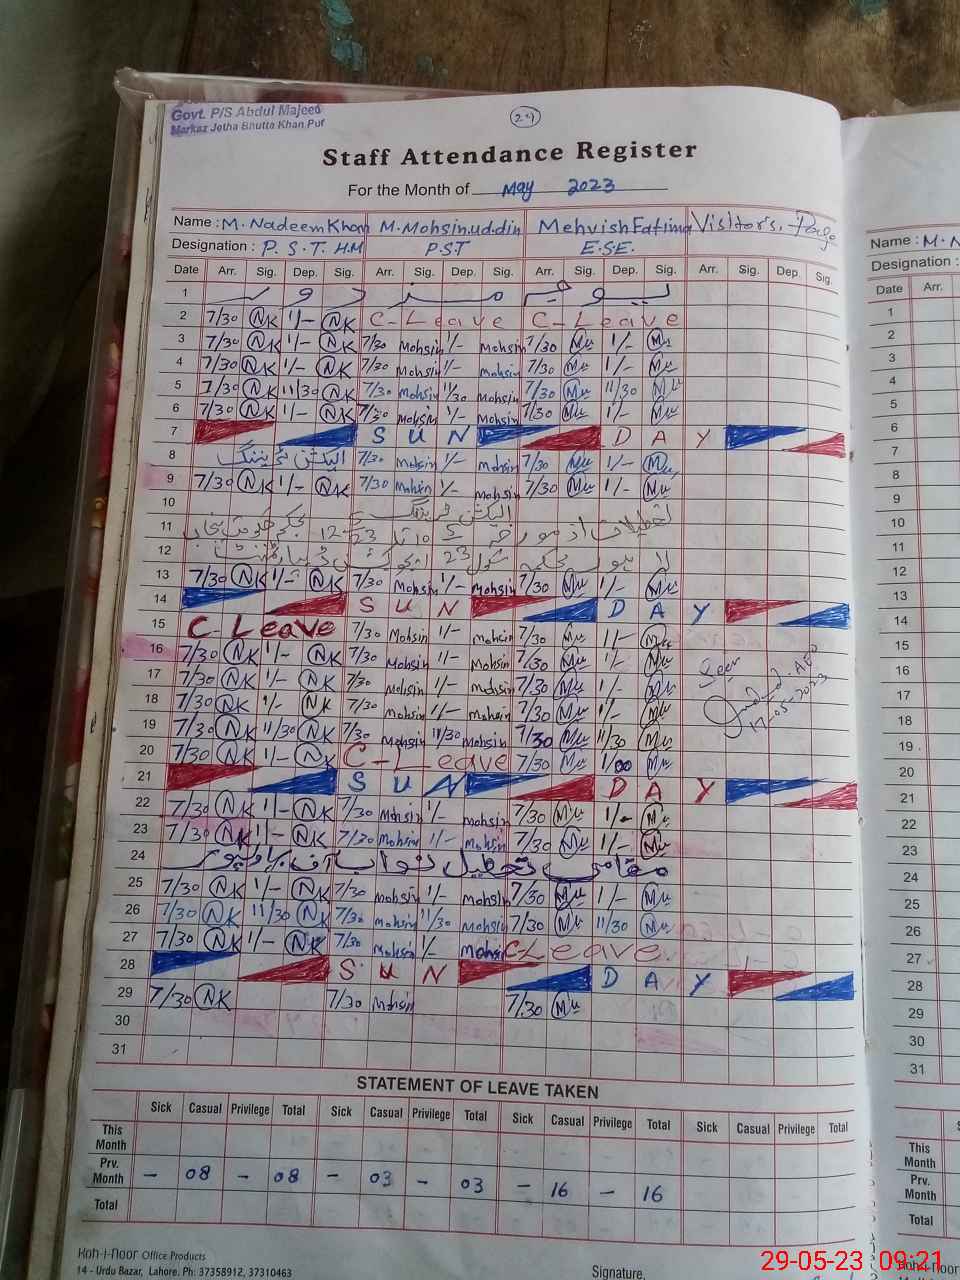 Govt. P/S Abdul Majeed
Markaz Jetha Bhutta Khan Pur
29
Staff Attendance Register
For the Month of May 2023
Name : M. Nadeem Khan M. Mohsin.ud.din Mehvish Fatima Visitor's. Page
Designation : P. S. T. H.M P.ST E.SE.
Date Arr. Sig. Dep. Sig. Arr. Sig. Dep. Sig. Arr. Sig. Dep. Sig. Arr. Sig. Dep. Sig.
1 یوم مزدور
2 7/30 NK 1/- NK C-Leave C-Leave
3 7/30 NK 1/- NK 7/30 Mohsin 1/- Mohsin 7/30 Mu 1/- Mu
4 7/30 NK 1/- NK 7/30 Mohsin 1/- Mohsin 7/30 Mu 1/- Mu
5 7/30 NK 11/30 NK 7/30 Mohsin 11/30 Mohsin 7/30 Mu 11/30 Mu
6 7/30 NK 1/- NK 7/30 Mohsin 1/- Mohsin 7/30 Mu 1/- Mu
7 SUN DAY
8 الیکشن ٹریننگ 7/30 Mohsin 1/- Mohsin 7/30 Mu 1/- Mu
9 7/30 NK 1/- NK 7/30 Mohsin 1/- Mohsin 7/30 Mu 1/- Mu
10 الیکشن ٹریننگ
11 تعطیلات از مورخہ 10 تا 12-5-23
12 لاہور محکمہ سکول ایجوکیشن ڈیپارٹمنٹ
13 7/30 NK 1/- NK 7/30 Mohsin 1/- Mohsin 7/30 Mu 1/- Mu
14 SUN DAY
15 C-Leave 7/30 Mohsin 1/- Mohsin 7/30 Mu 1/- Mu
16 7/30 NK 1/- NK 7/30 Mohsin 1/- Mohsin 7/30 Mu 1/- Mu Seen
17 7/30 NK 1/- NK 7/30 Mohsin 1/- Mohsin 7/30 Mu 1/- Mu AEO
18 7/30 NK 1/- NK 7/30 Mohsin 1/- Mohsin 7/30 Mu 1/- Mu 17-05-2023
19 7/30 NK 11/30 NK 7/30 Mohsin 11/30 Mohsin 7/30 Mu 11/30 Mu
20 7/30 NK 1/- NK C-Leave 7/30 Mu 1/00 Mu
21 SUN DAY
22 7/30 NK 1/- NK 7/30 Mohsin 1/- Mohsin 7/30 Mu 1/- Mu
23 7/30 NK 1/- NK 7/30 Mohsin 1/- Mohsin 7/30 Mu 1/- Mu
24 مقامی تعطیل نواب آف بہاولپور
25 7/30 NK 1/- NK 7/30 Mohsin 1/- Mohsin 7/30 Mu 1/- Mu
26 7/30 NK 11/30 NK 7/30 Mohsin 11/30 Mohsin 7/30 Mu 11/30 Mu
27 7/30 NK 1/- NK 7/30 Mohsin 1/- Mohsin C-Leave
28 SUN DAY
29 7/30 NK 7/30 Mohsin 7/30 Mu
30
31
STATEMENT OF LEAVE TAKEN
Sick Casual Privilege Total Sick Casual Privilege Total Sick Casual Privilege Total Sick Casual Privilege Total
This Month
Prv. Month - 08 - 08 - 03 - 03 - 16 - 16
Total
Koh-i-noor Office Products
14 - Urdu Bazar, Lahore. Ph: 37358912, 37310463
Signature.
Name : M. N
Designation :
Date Arr.
1
2
3
4
5
6
7
8
9
10
11
12
13
14
15
16
17
18
19
20
21
22
23
24
25
26
27
28
29
30
31
This Month
Prv. Month
Total
Koh-i-noor
14 - Urdu
29-05-23 09:21